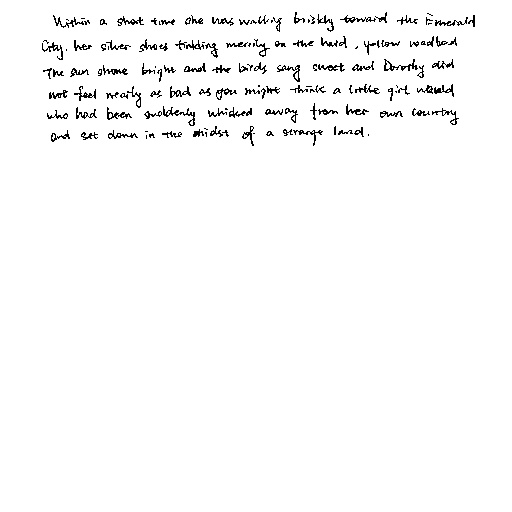 Within a short time she was walking briskly toward the Emerald
City. her silver shoes tinkling merrily on the hard, yellow roadbad
The sun shone bright and the birds sang sweet and Dorothy did
not feel nearly as bad as you might think a little girl would
who had been suddenly whisked away from her own country
and set down in the midst of a strange land.